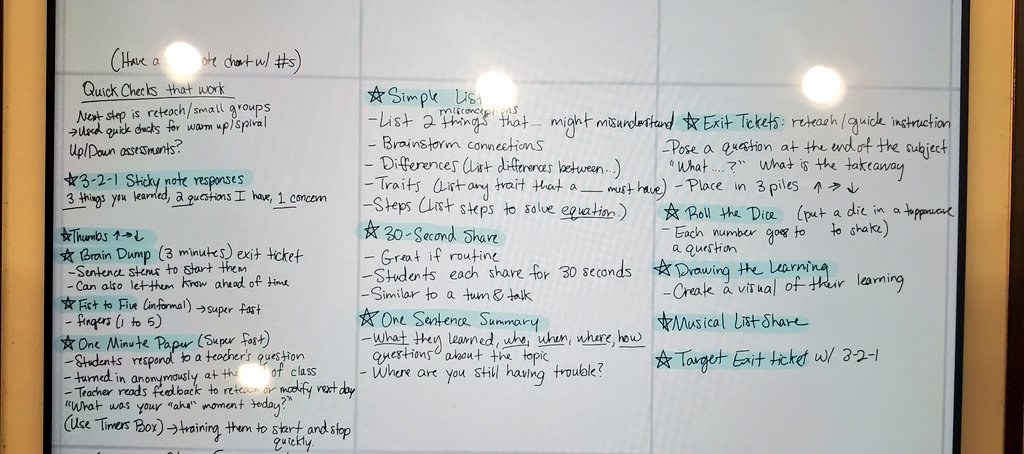 (Have a note chart w/ #s)
Quick Checks that work
Next step is reteach/small groups
→ Used quick checks for warm up/spiral
Up/Down assessments?
☆ 3-2-1 Sticky note responses
3 things you learned, 2 questions I have, 1 concern
☆ Thumbs ↑ → ↓
☆ Brain Dump (3 minutes) exit ticket
- Sentence stems to start them
- Can also let them know ahead of time
☆ Fist to Five (informal) → super fast
- fingers (1 to 5)
☆ One Minute Paper (Super Fast)
- Students respond to a teacher's question
- turned in anonymously at the of class
- Teacher reads feedback to reteach or modify next day
"What was your "aha" moment today?"
(Use Timers Box) → training them to start and stop
quickly.
☆ Simple List
misconceptions
- List 2 things that.... might misunderstand
- Brainstorm connections
- Differences (List differences between...)
- Traits (List any trait that a ___ must have)
- Steps (List steps to solve equation.)
☆ 30-Second Share
- Great if routine
- Students each share for 30 seconds
- Similar to a turn & talk
☆ One Sentence Summary
- What they learned, who, when, where, how
questions about the topic
- Where are you still having trouble?
☆ Exit Tickets: reteach/guide instruction
- Pose a question at the end of the subject
"What ....?" What is the takeaway
- Place in 3 piles ↑ → ↓
☆ Roll the Dice (put a die in a tupperware
- Each number goes to to shake)
a question
☆ Drawing the Learning
- Create a visual of their learning
☆ Musical List Share
☆ Target Exit ticket w/ 3-2-1